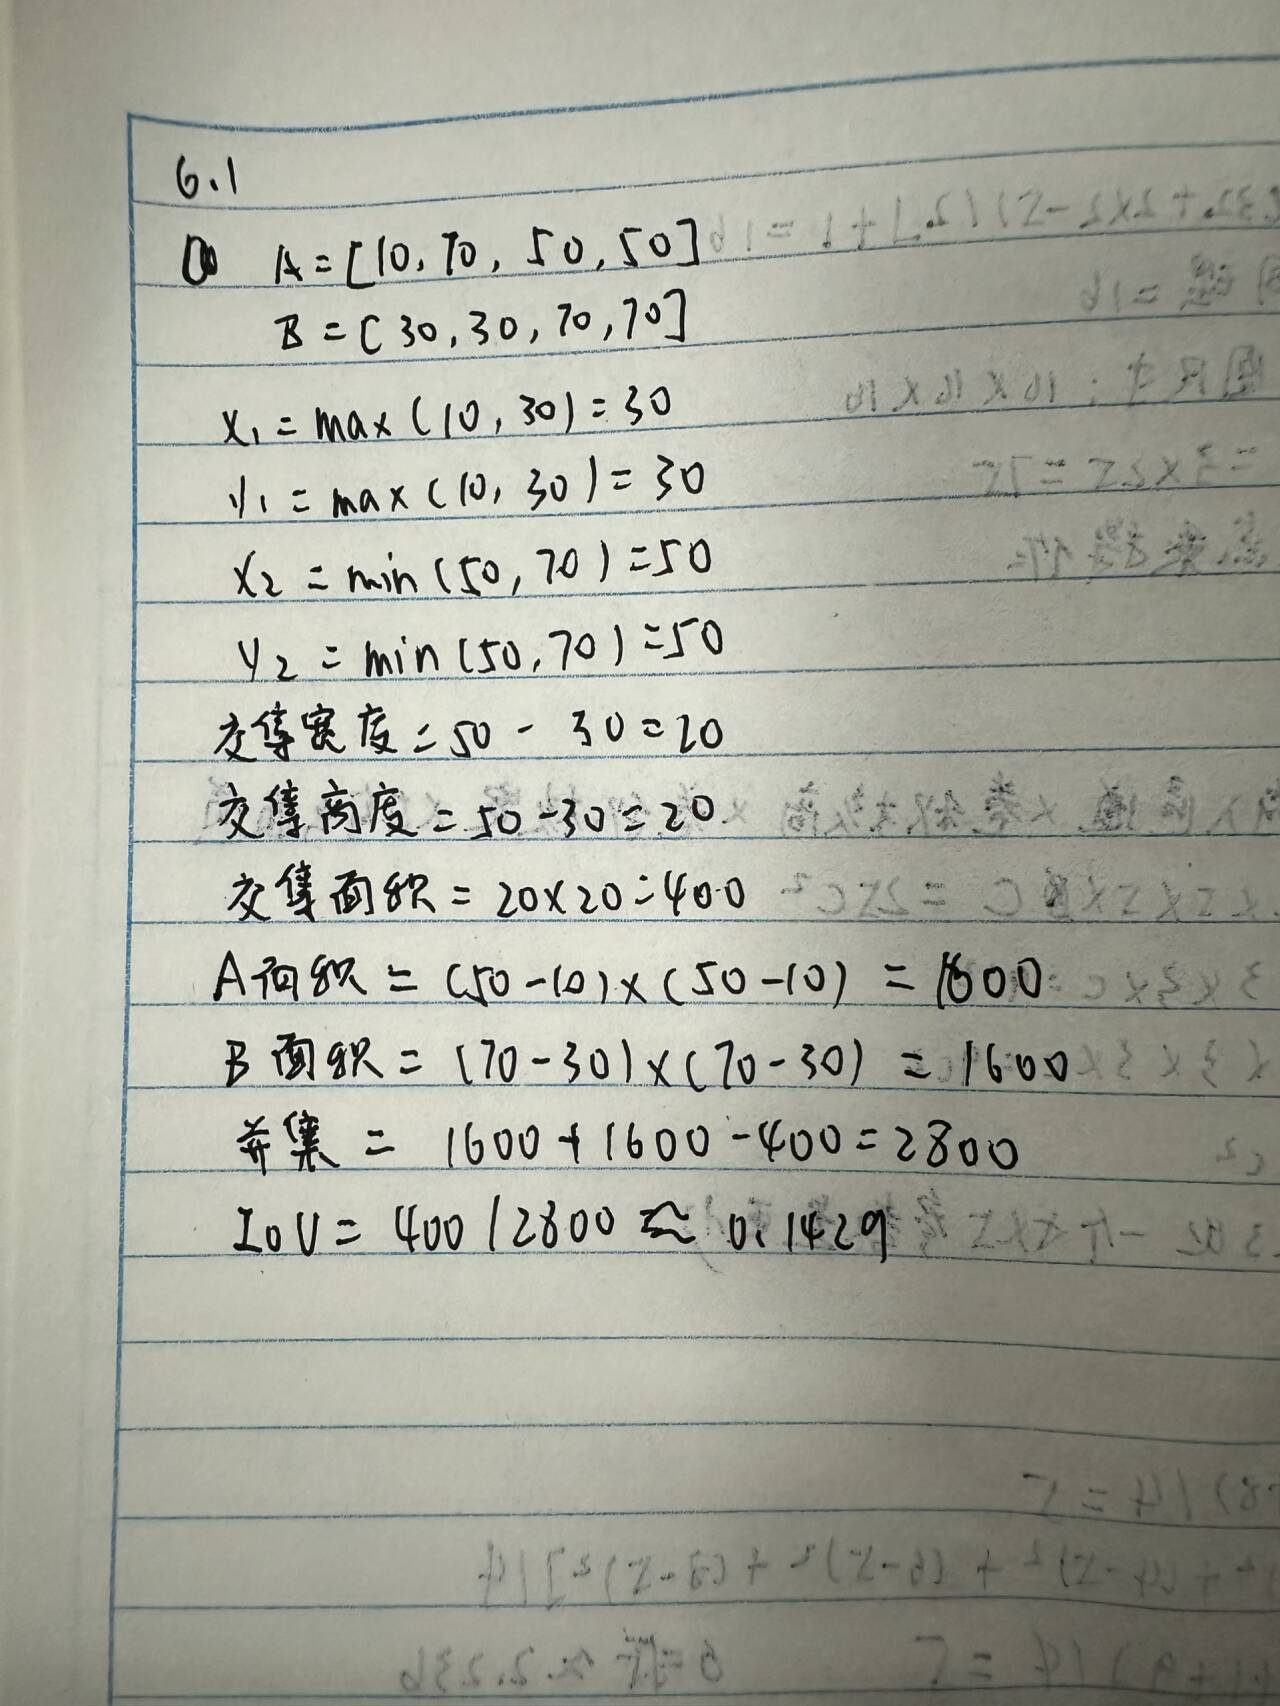 6.1
① A=[10,70,50,50]
B=[30,30,70,70]
x₁=max(10,30)=30
y₁=max(10,30)=30
x₂=min(50,70)=50
y₂=min(50,70)=50
交集宽度=50-30=20
交集高度=50-30=20
交集面积=20×20=400
A面积=(50-10)×(50-10)=1600
B面积=(70-30)×(70-30)=1600
并集=1600+1600-400=2800
IoU=400/2800≈0.1429